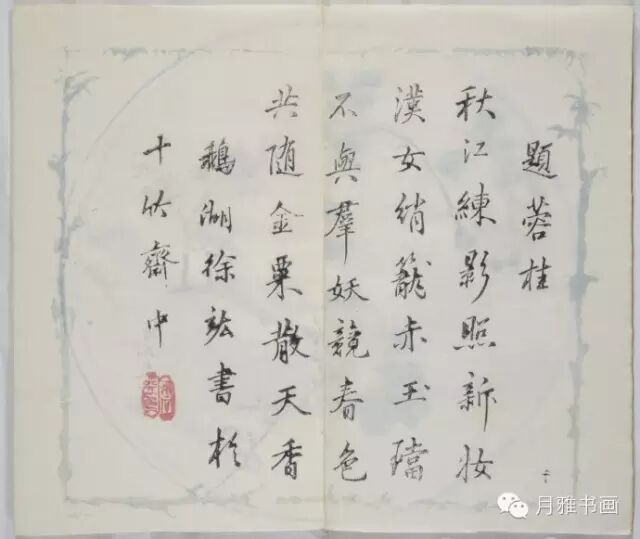 題蓉桂
秋江練影照新妝
漢女綃籠赤玉璫
不與羣妖競春色
共随金粟散天香
鵝湖徐竑書於
十竹齋中
月雅书画